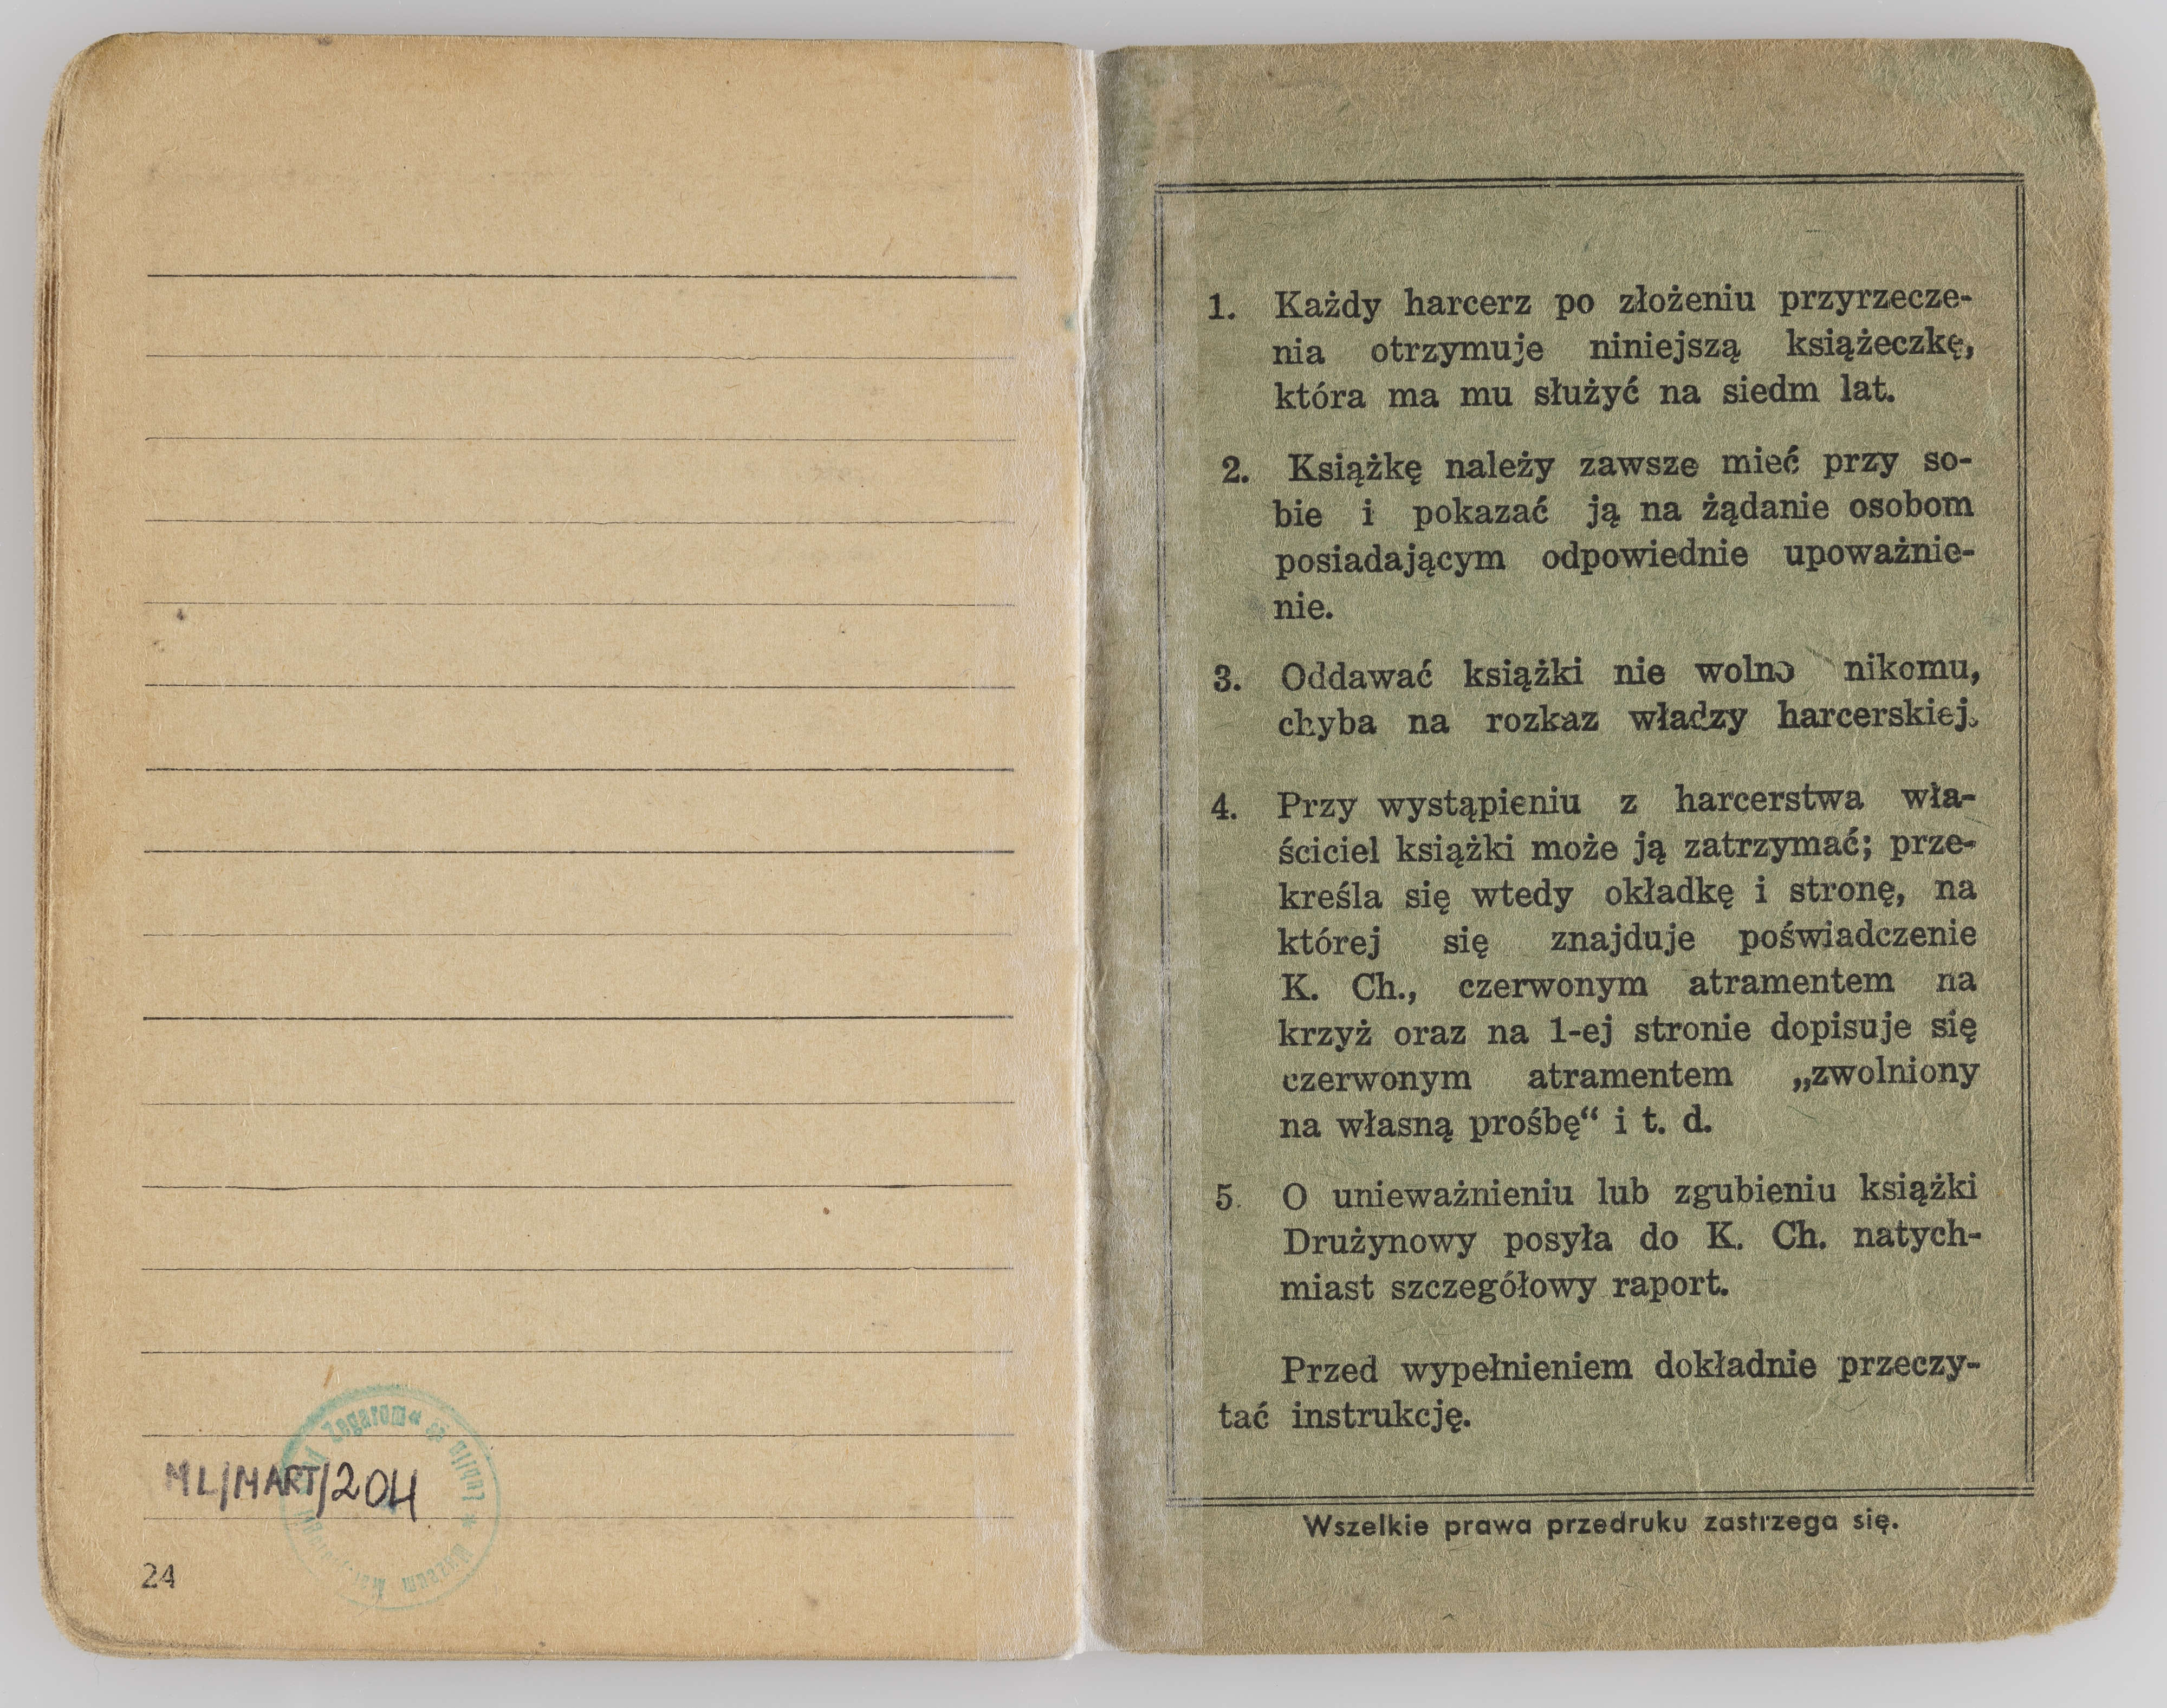 ML/MART/204
Pod Zegarem" w Lublinie * Muzeum
24
1. Każdy harcerz po złożeniu przyrzecze-
nia otrzymuje niniejszą książeczkę,
która ma mu służyć na siedm lat.
2. Książkę należy zawsze mieć przy so-
bie i pokazać ją na żądanie osobom
posiadającym odpowiednie upoważnie-
nie.
3. Oddawać książki nie wolno nikomu,
chyba na rozkaz władzy harcerskiej.
4. Przy wystąpieniu z harcerstwa wła-
ściciel książki może ją zatrzymać; prze-
kreśla się wtedy okładkę i stronę, na
której się znajduje poświadczenie
K. Ch., czerwonym atramentem na
krzyż oraz na 1-ej stronie dopisuje się
czerwonym atramentem „zwolniony
na własną prośbę“ i t. d.
5. O unieważnieniu lub zgubieniu książki
Drużynowy posyła do K. Ch. natych-
miast szczegółowy raport.
Przed wypełnieniem dokładnie przeczy-
tać instrukcję.
Wszelkie prawa przedruku zastrzega się.